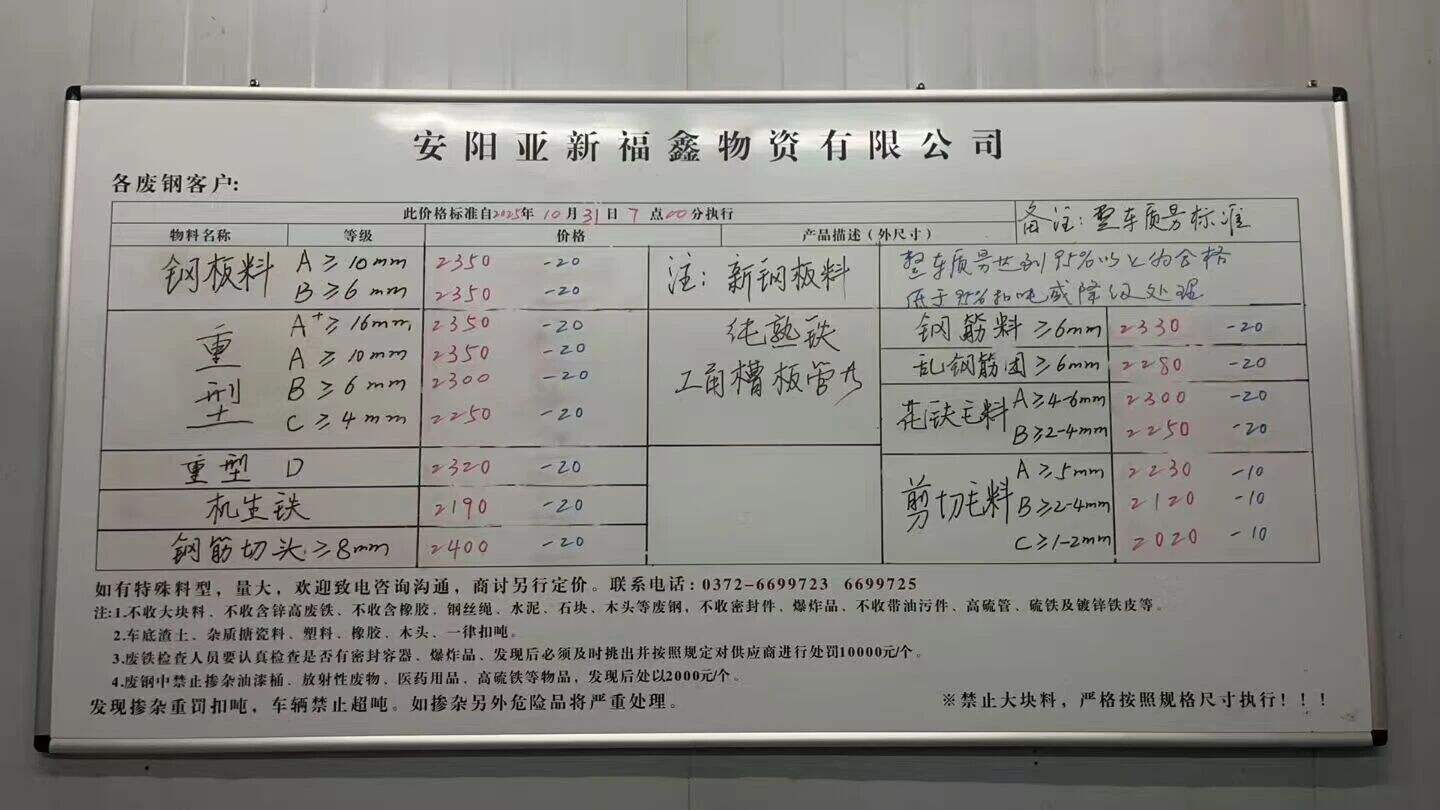 安阳亚新福鑫物资有限公司
各废钢客户:
此价格标准自2025年10月31日7点00分执行
备注:整车质另标准
物料名称 等级 价格 产品描述(外尺寸)
钢板料 A≥10mm 2350 -20
B≥6mm 2350 -20
注:新钢板料
整车质另达到95%以上为合格
低于95%扣吨或降级处理
重型
A+≥16mm 2350 -20
A≥10mm 2350 -20
B≥6mm 2300 -20
C≥4mm 2250 -20
纯熟铁
工角槽板管为
重型 D 2320 -20
机生铁 2190 -20
钢筋切头≥8mm 2400 -20
钢筋料≥6mm 2330 -20
乱钢筋团≥6mm 2280 -20
花铁毛料 A≥4-6mm 2300 -20
B≥2-4mm 2250 -20
剪切毛料 A≥5mm 2230 -10
B≥2-4mm 2120 -10
C≥1-2mm 2020 -10
如有特殊料型,量大,欢迎致电咨询沟通,商讨另行定价。联系电话:0372-6699723 6699725
注:1.不收大块料、不收含锌高废铁、不收含橡胶,钢丝绳、水泥、石块、木头等废钢,不收密封件、爆炸品、不收带油污件、高硫管、硫铁及镀锌铁皮等。
2.车底渣土、杂质搪瓷料、塑料、橡胶、木头、一律扣吨。
3.废铁检查人员要认真检查是否有密封容器、爆炸品、发现后必须及时挑出并按照规定对供应商进行处罚10000元/个。
4.废钢中禁止掺杂油漆桶、放射性废物、医药用品、高硫铁等物品,发现后处以2000元/个。
发现掺杂重罚扣吨,车辆禁止超吨。如掺杂另外危险品将严重处理。
※禁止大块料,严格按照规格尺寸执行!!!